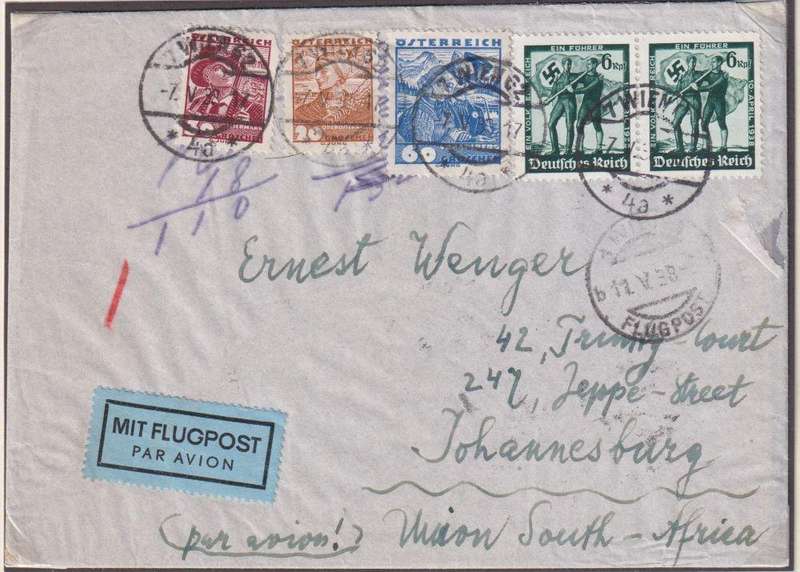 ÖSTERREICH
ÖSTERREICH
20
ÖSTERREICH
60
EIN FÜHRER
6 Rpf
EIN VOLK EIN REICH
10. APRIL 1938
Deutsches Reich
EIN FÜHRER
6 Rpf
EIN VOLK EIN REICH
10. APRIL 1938
Deutsches Reich
1 WIEN
-7. V.
* 4a *
1 WIEN
* 4a *
1 WIEN
4a
110
Ernest Wenger
42, Trinity Court
247, Jeppe-Street
Johannesburg
(par avion!) Union South-Africa
b 11. V. 38
FLUGPOST
MIT FLUGPOST
PAR AVION